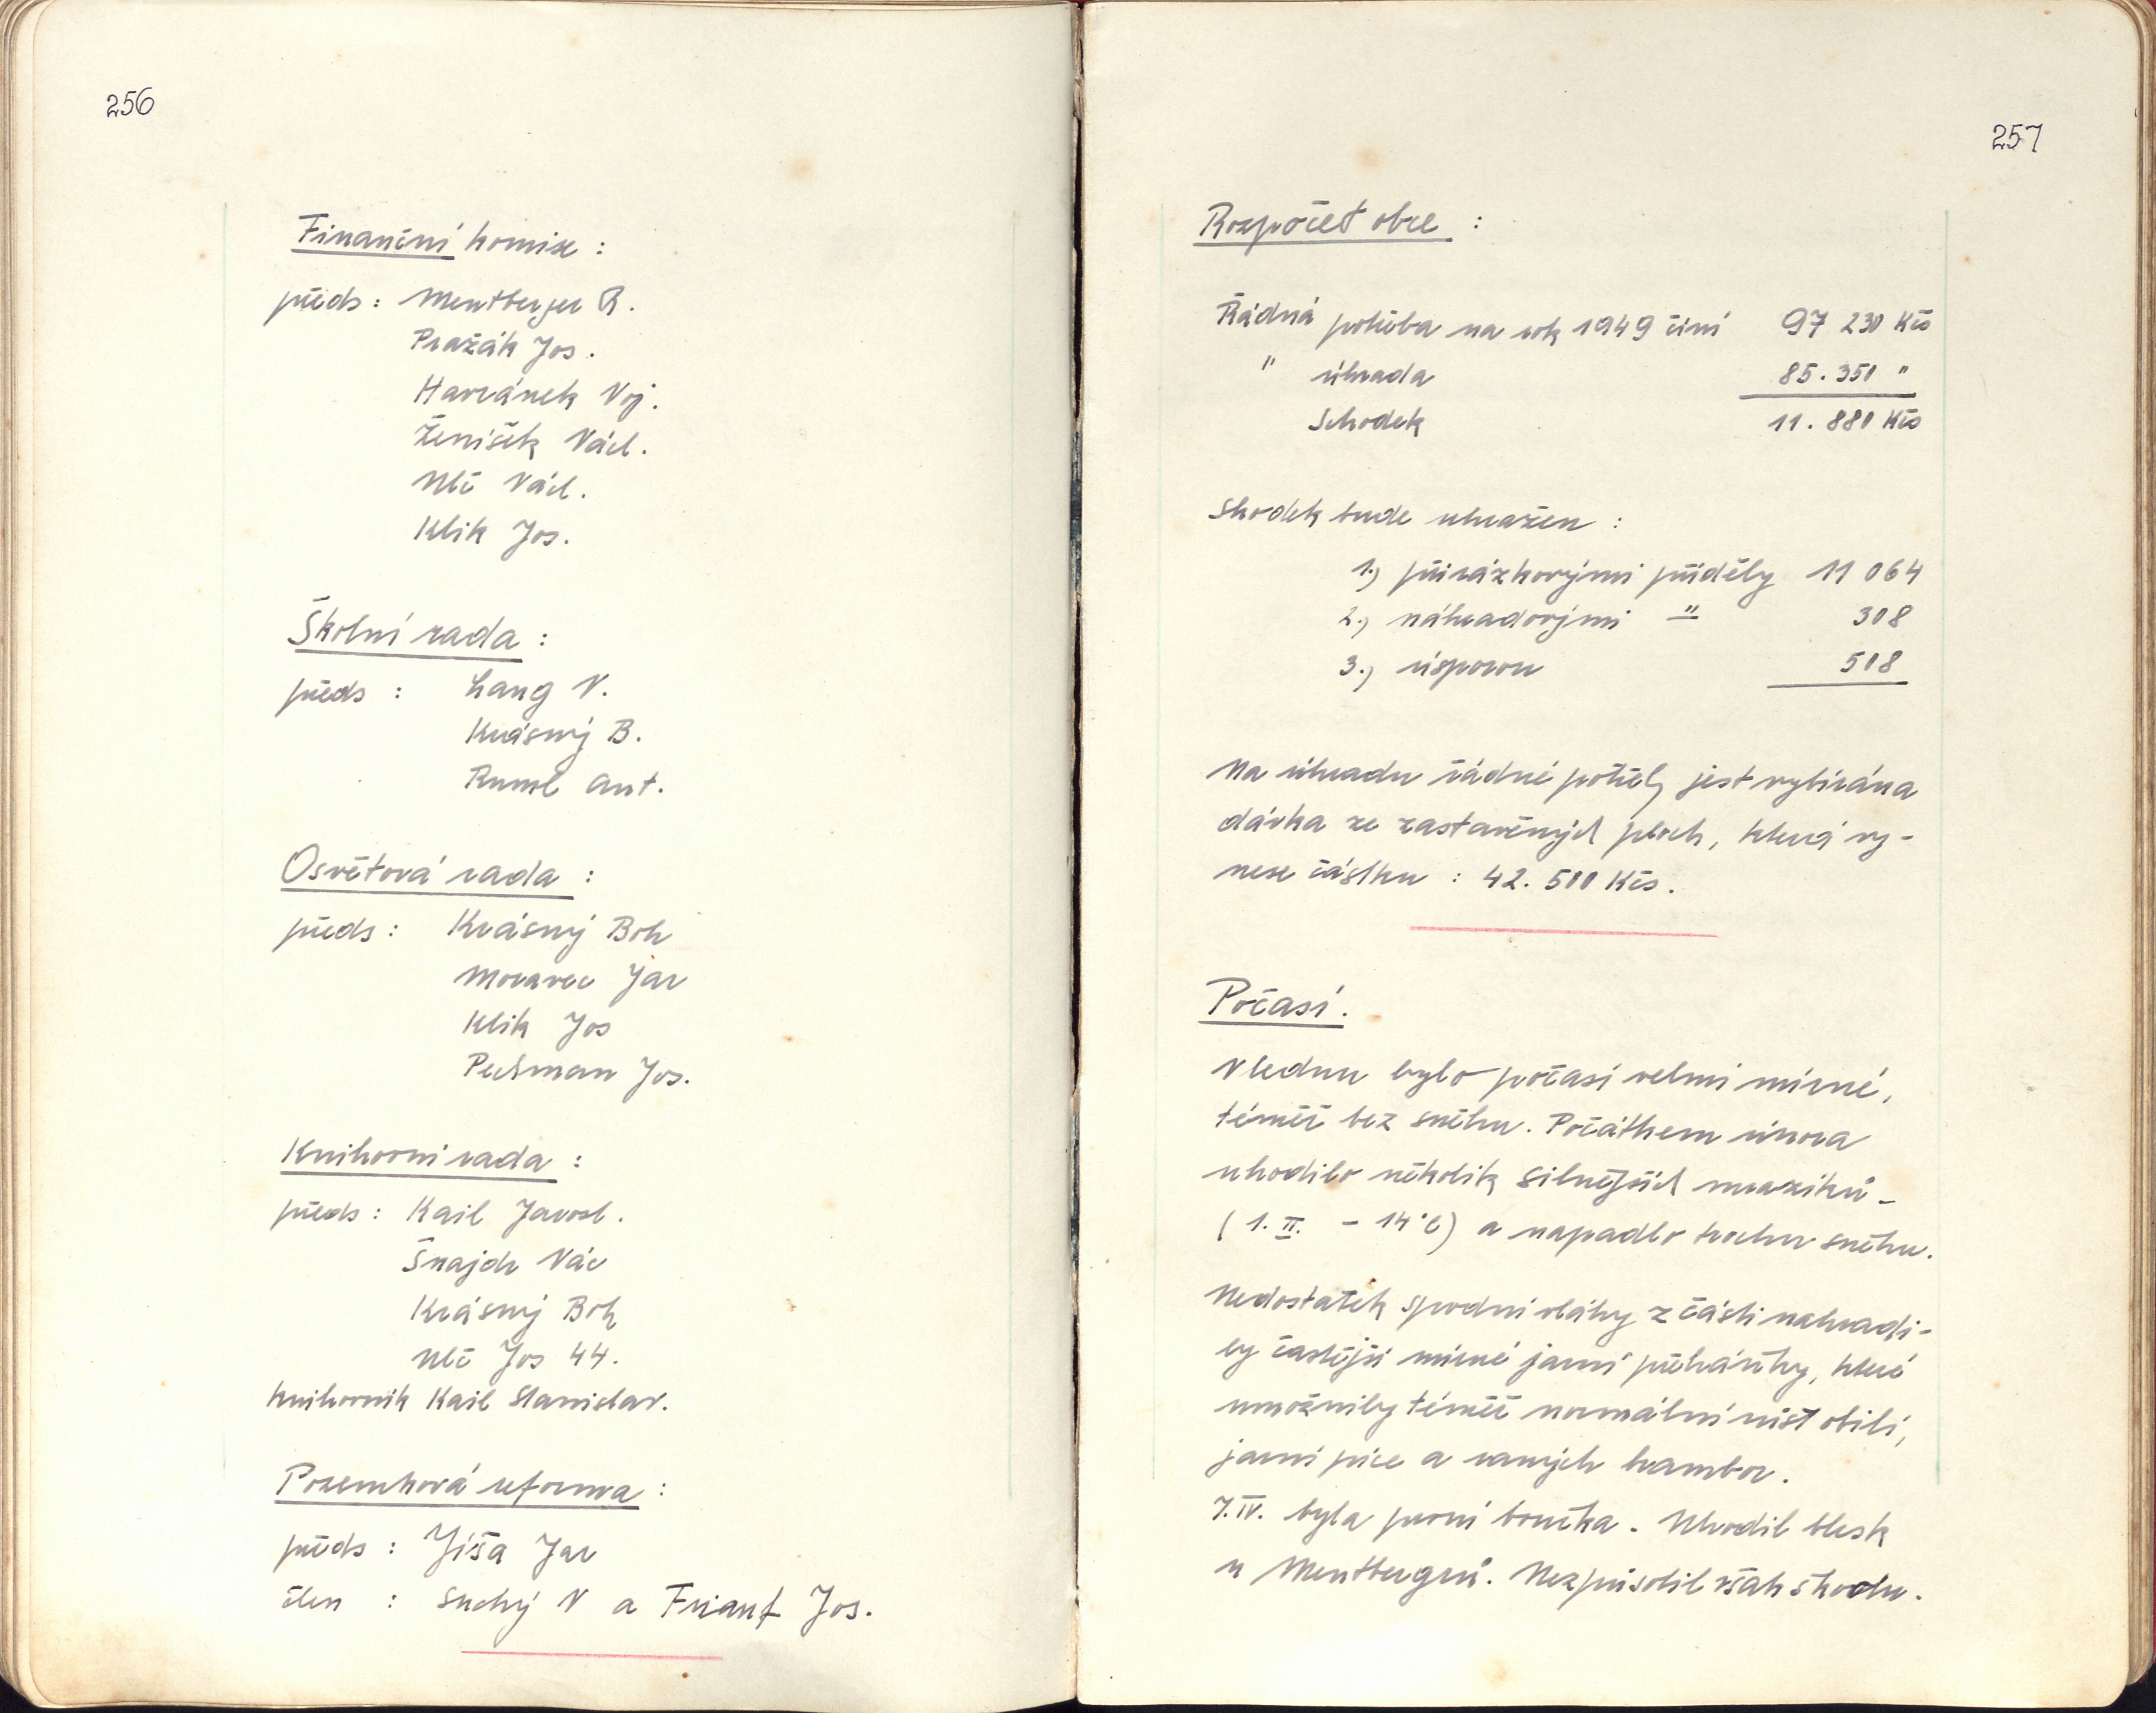 256
Finanční komise :
předs : Mentberger R.
Pražák Jos.
Havránek Voj.
Ženíšek Václ.
Vlč Václ.
Klik Jos.
Školní rada :
předs : Lang V.
Krásný B.
Ruml Ant.
Osvětová rada :
předs : Krásný Boh
Moravec Jar
Klik Jos
Pechman Jos.
Knihovní rada :
předs : Kail Jarosl.
Šnajdr Vác
Krásný Boh
Vlč Jos 44.
knihovník Kail Stanislav.
Pozemková reforma :
předs : Jíša Jar
člen : Suchý V a Friauf Jos.
257
Rozpočet obce :
Řádná potřeba na rok 1949 činí 97 230 Kčs
" úhrada 85.350 "
Schodek 11.880 Kčs
Shodek bude uhražen :
1.) přirážkovými příděly 11 064
2.) náhradovými " 308
3.) úsporou 508
Na úhradu řádné potřeby jest vybírána
dávka ze zastavěných ploch, která vy-
nese částku : 42.500 Kčs.
Počasí.
V lednu bylo počasí velmi mírné,
téměř bez sněhu. Počátkem února
uhodilo několik silnějších mrazíků -
(1. II. - 14°C) a napadlo trochu sněhu.
Nedostatek spodní vláhy z části nahradi-
ly častější mírné jarní přeháňky, které
umožnily téměř normální růst obilí,
jarní píce a raných brambor.
7. IV. byla první bouřka. Uhodil blesk
u Mentbergrů. Nezpůsobil však škodu.